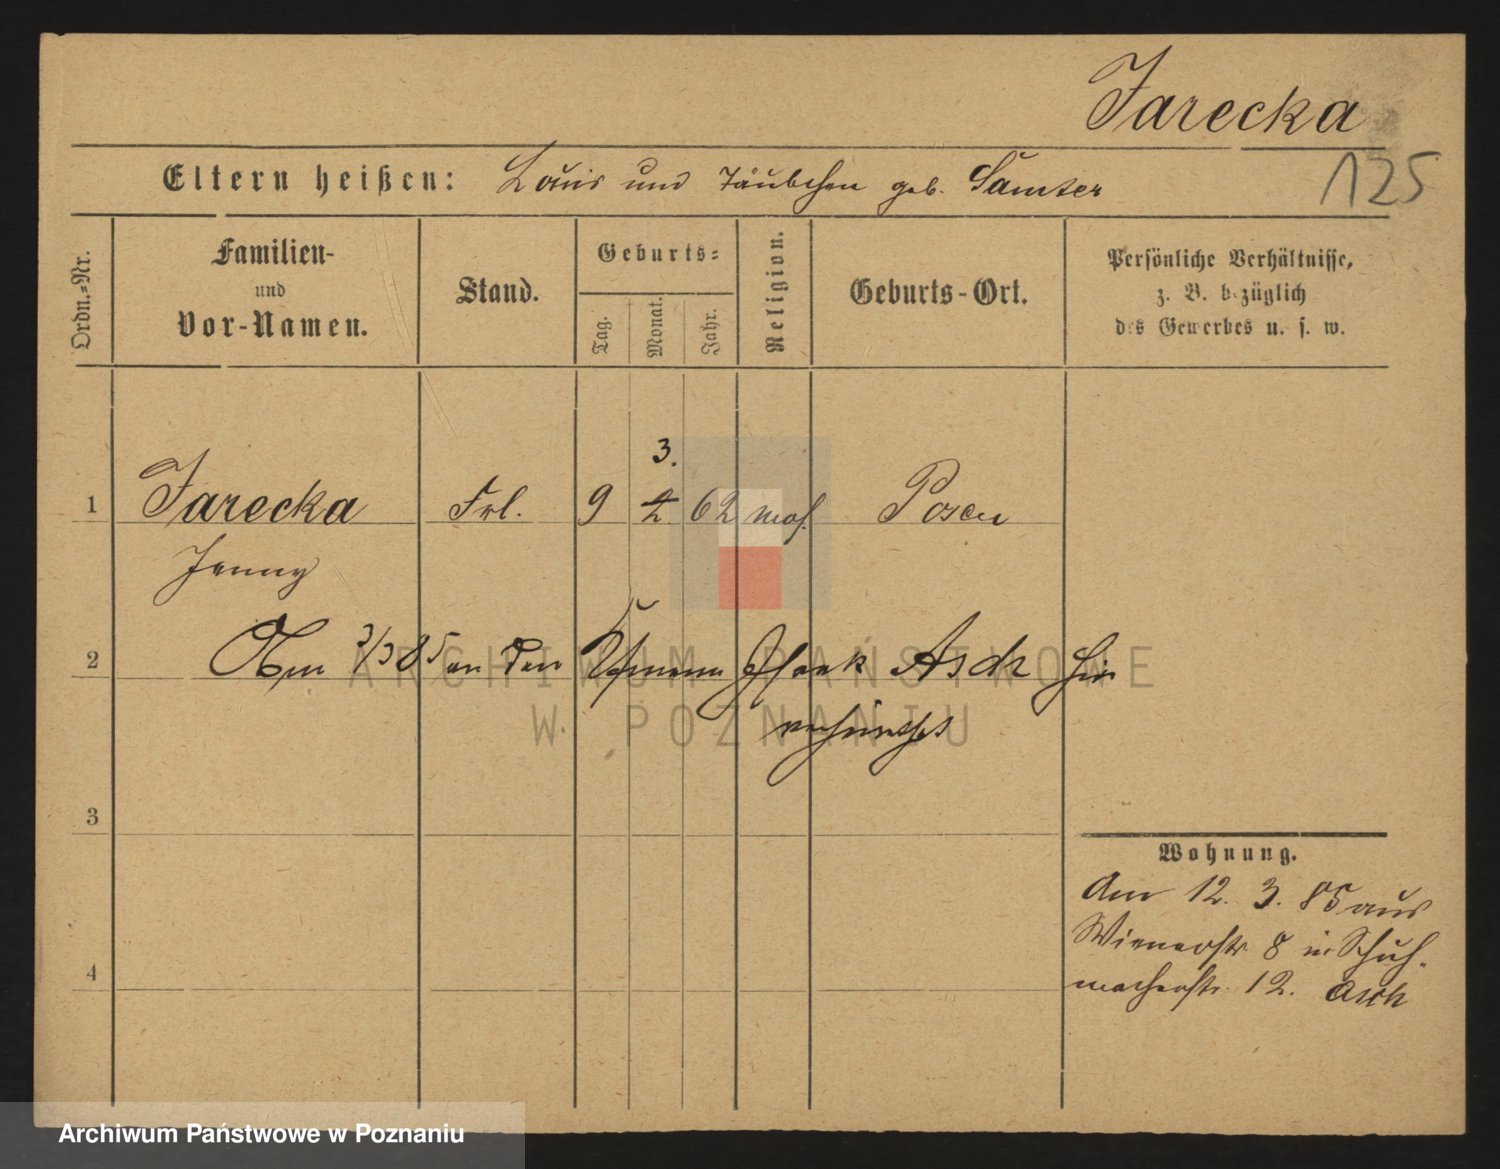 Jarecka
125
Eltern heißen: Louis und Täubchen geb. Samter
Ordn.-Nr.
Familien-
und
Vor-Namen.
Stand.
Geburts-
Tag.
Monat.
Jahr.
Religion.
Geburts-Ort.
Persönliche Verhältnisse,
z. B. bezüglich
des Gewerbes u. s. w.
3.
1 Jarecka Frl. 9 2 62 mos. Posen
Jenny
2 Am 3/3 85 an den Isaak Asch hier
verheirathet
3
Wohnung.
Am 12. 3. 85 aus
Wienerstr. 8 in Schuh-
macherstr. 12. Asch
4
ARCHIWUM PAŃSTWOWE
W POZNANIU
Archiwum Państwowe w Poznaniu